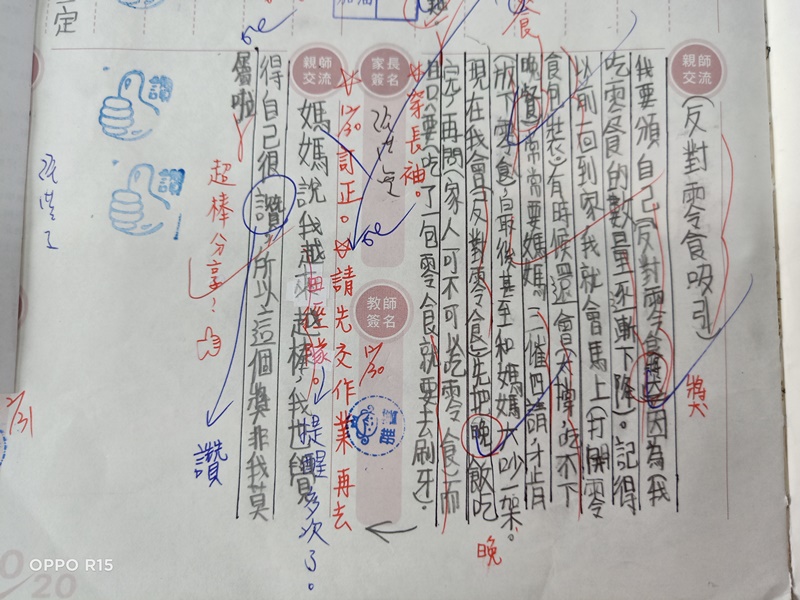 親師交流
(反對零食吸引)
我要頒自己反對零食獎,因為我
吃零食的數量逐漸下降。記得
以前一回到家我就會馬上(打開零
食包裝)有時候還會(太撐,吃不下
晚餐)常常要媽媽(三催四請,才肯
放下零食)最後甚至和媽媽大吵一架。
現在我會(反對零食)先把晚飯吃
完,再問(家人可不可以吃零食)而
且只要(吃了一包零食就要去刷牙)。
獎
晚
餐
家長簽名
教師簽名
12/30
業長袖。
12/30訂正。
請先交作業再去
無座隊。
提醒多次了。
親師交流
媽媽說我越來越棒,我也覺
得自己很讚,所以這個獎非我莫
屬啦!
超棒分享!
讚
讚
讚
12/31
定
20
OPPO R15